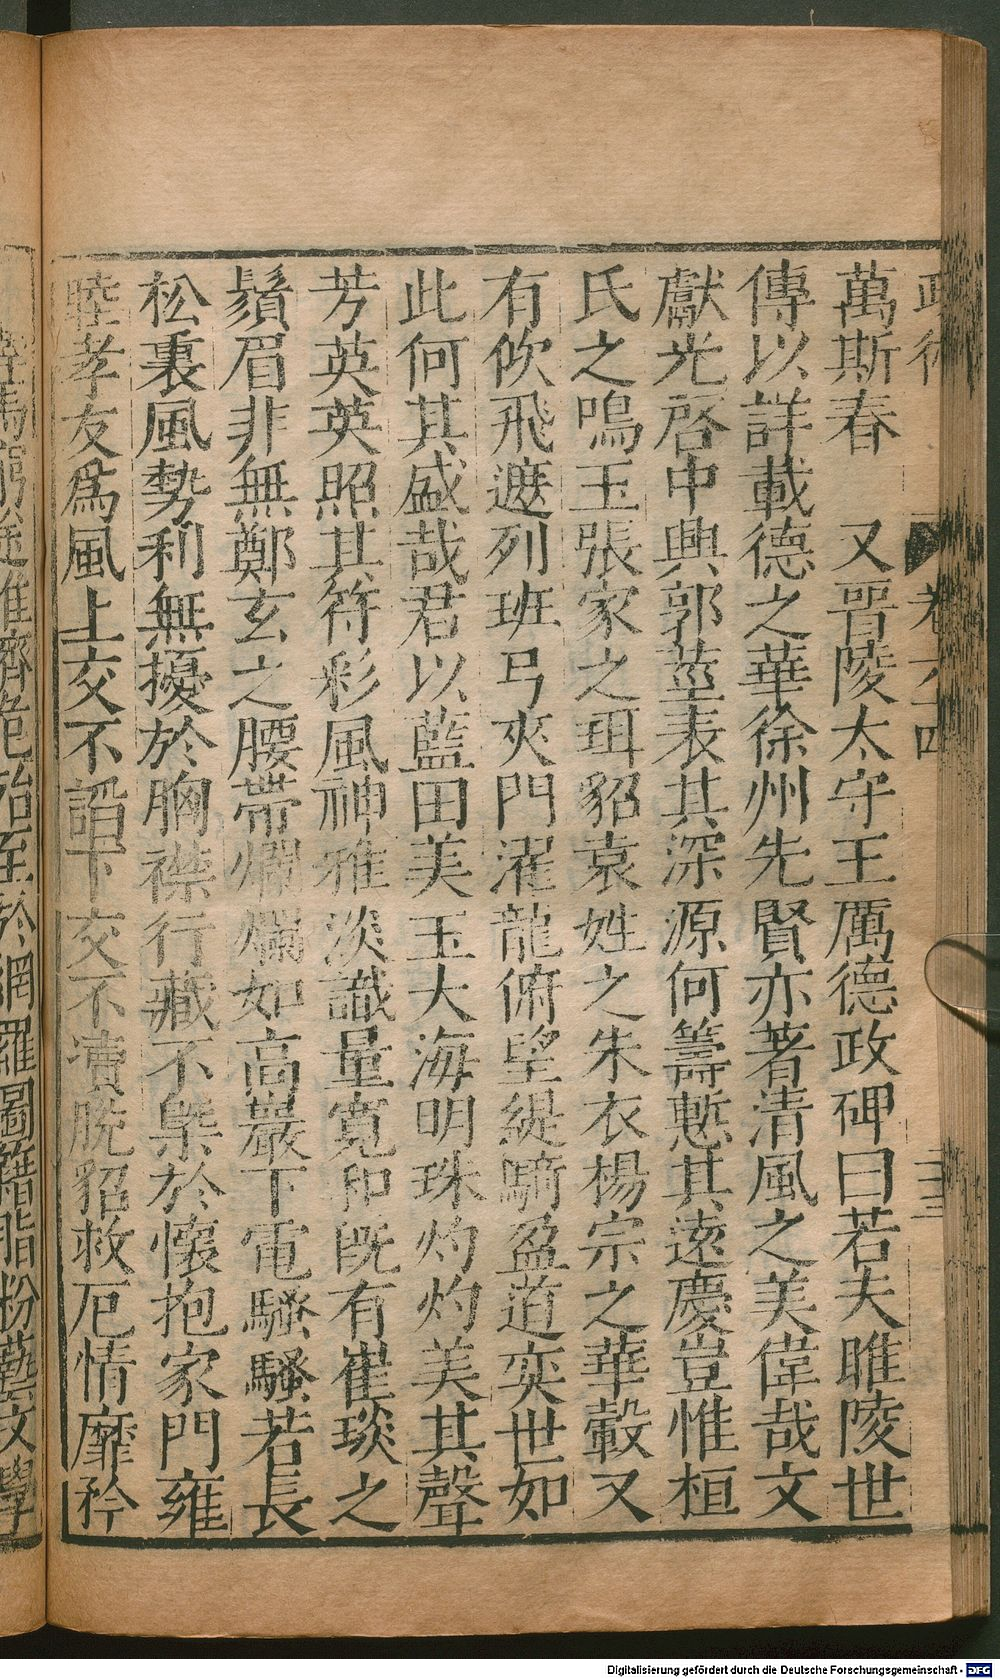 萬斯春　又晉陵太守王厲德政碑曰若夫睢陵世
傳以詳載德之華徐州先賢亦著清風之美偉哉文
獻光啓中興郭莖表其深源何籌慙其遠慶豈惟桓
氏之鳴玉張家之珥貂袁姓之朱衣楊宗之華轂又
有佽飛遮列班弓夾門濯龍俯望緹騎盈道奕世如
此何其盛哉君以藍田美玉大海明珠灼灼美其聲
芳英英照其符彩風神雅淡識量寬和既有崔琰之
鬚眉非無鄭玄之腰帶爛爛如高巖下電騷騷若長
松裏風勢利無擾於胸襟行藏不槩於懷抱家門雍
睦孝友爲風上交不諂下交不瀆脫貂救厄情靡矜
卷
四
三
途進濟危殆至於網羅圖籍脂粉藝文學
Digitalisierung gefördert durch die Deutsche Forschungsgemeinschaft - DFG